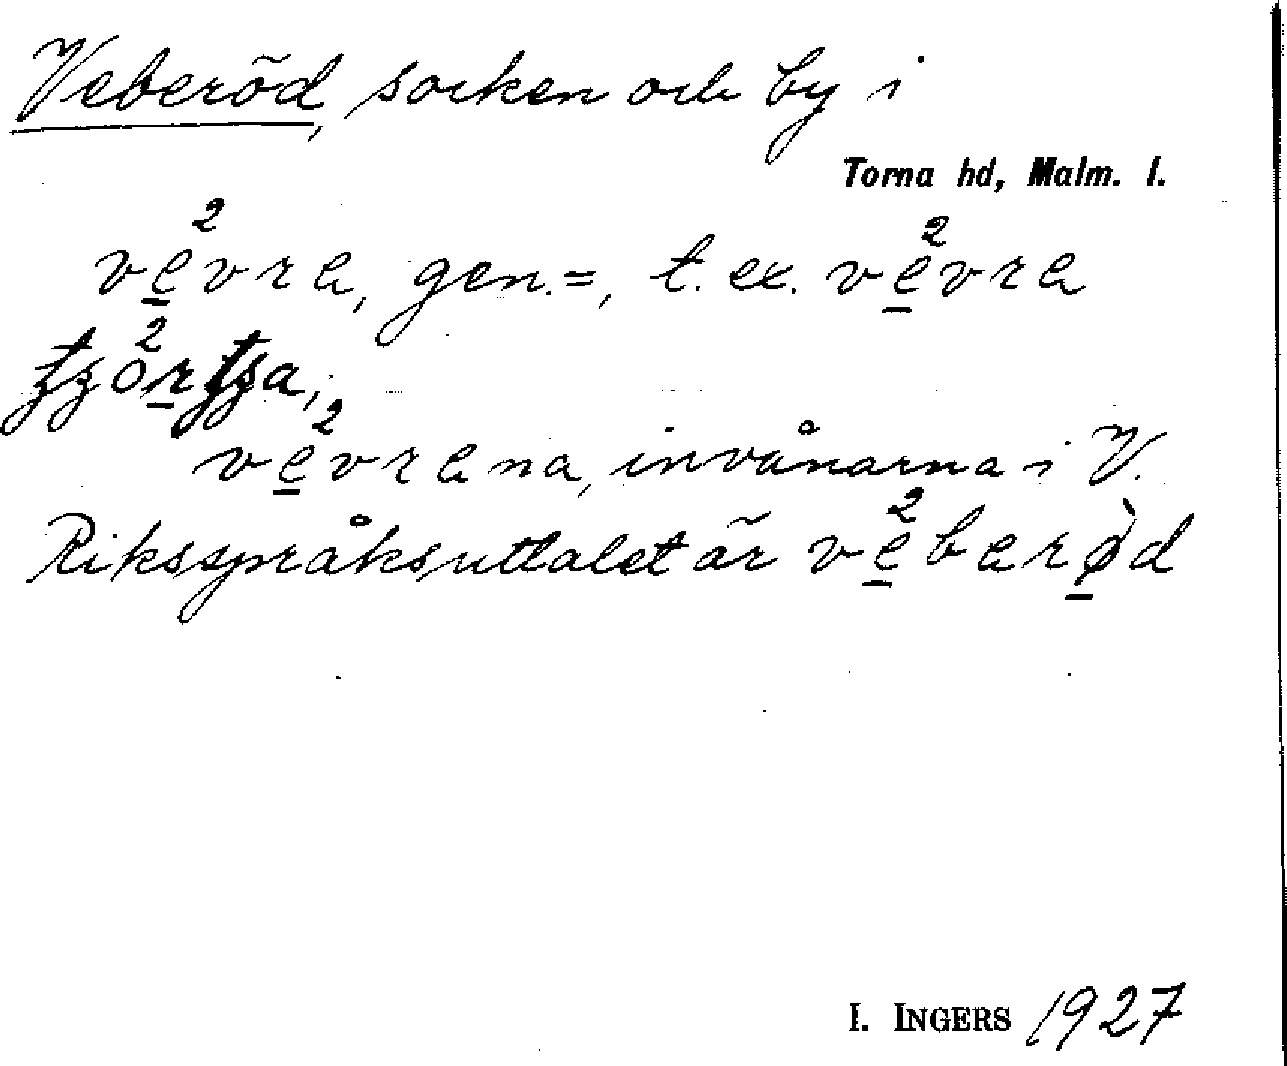 Veberöd, socken och by i
Torna hd, Malm. l.
ve̲²vra, gen. =, t. ex. ve̲²vra
ve̲²vrana, invånarna i V.
Riksspråksuttalet är ve̲²barø̲̀d
I. INGERS 1927